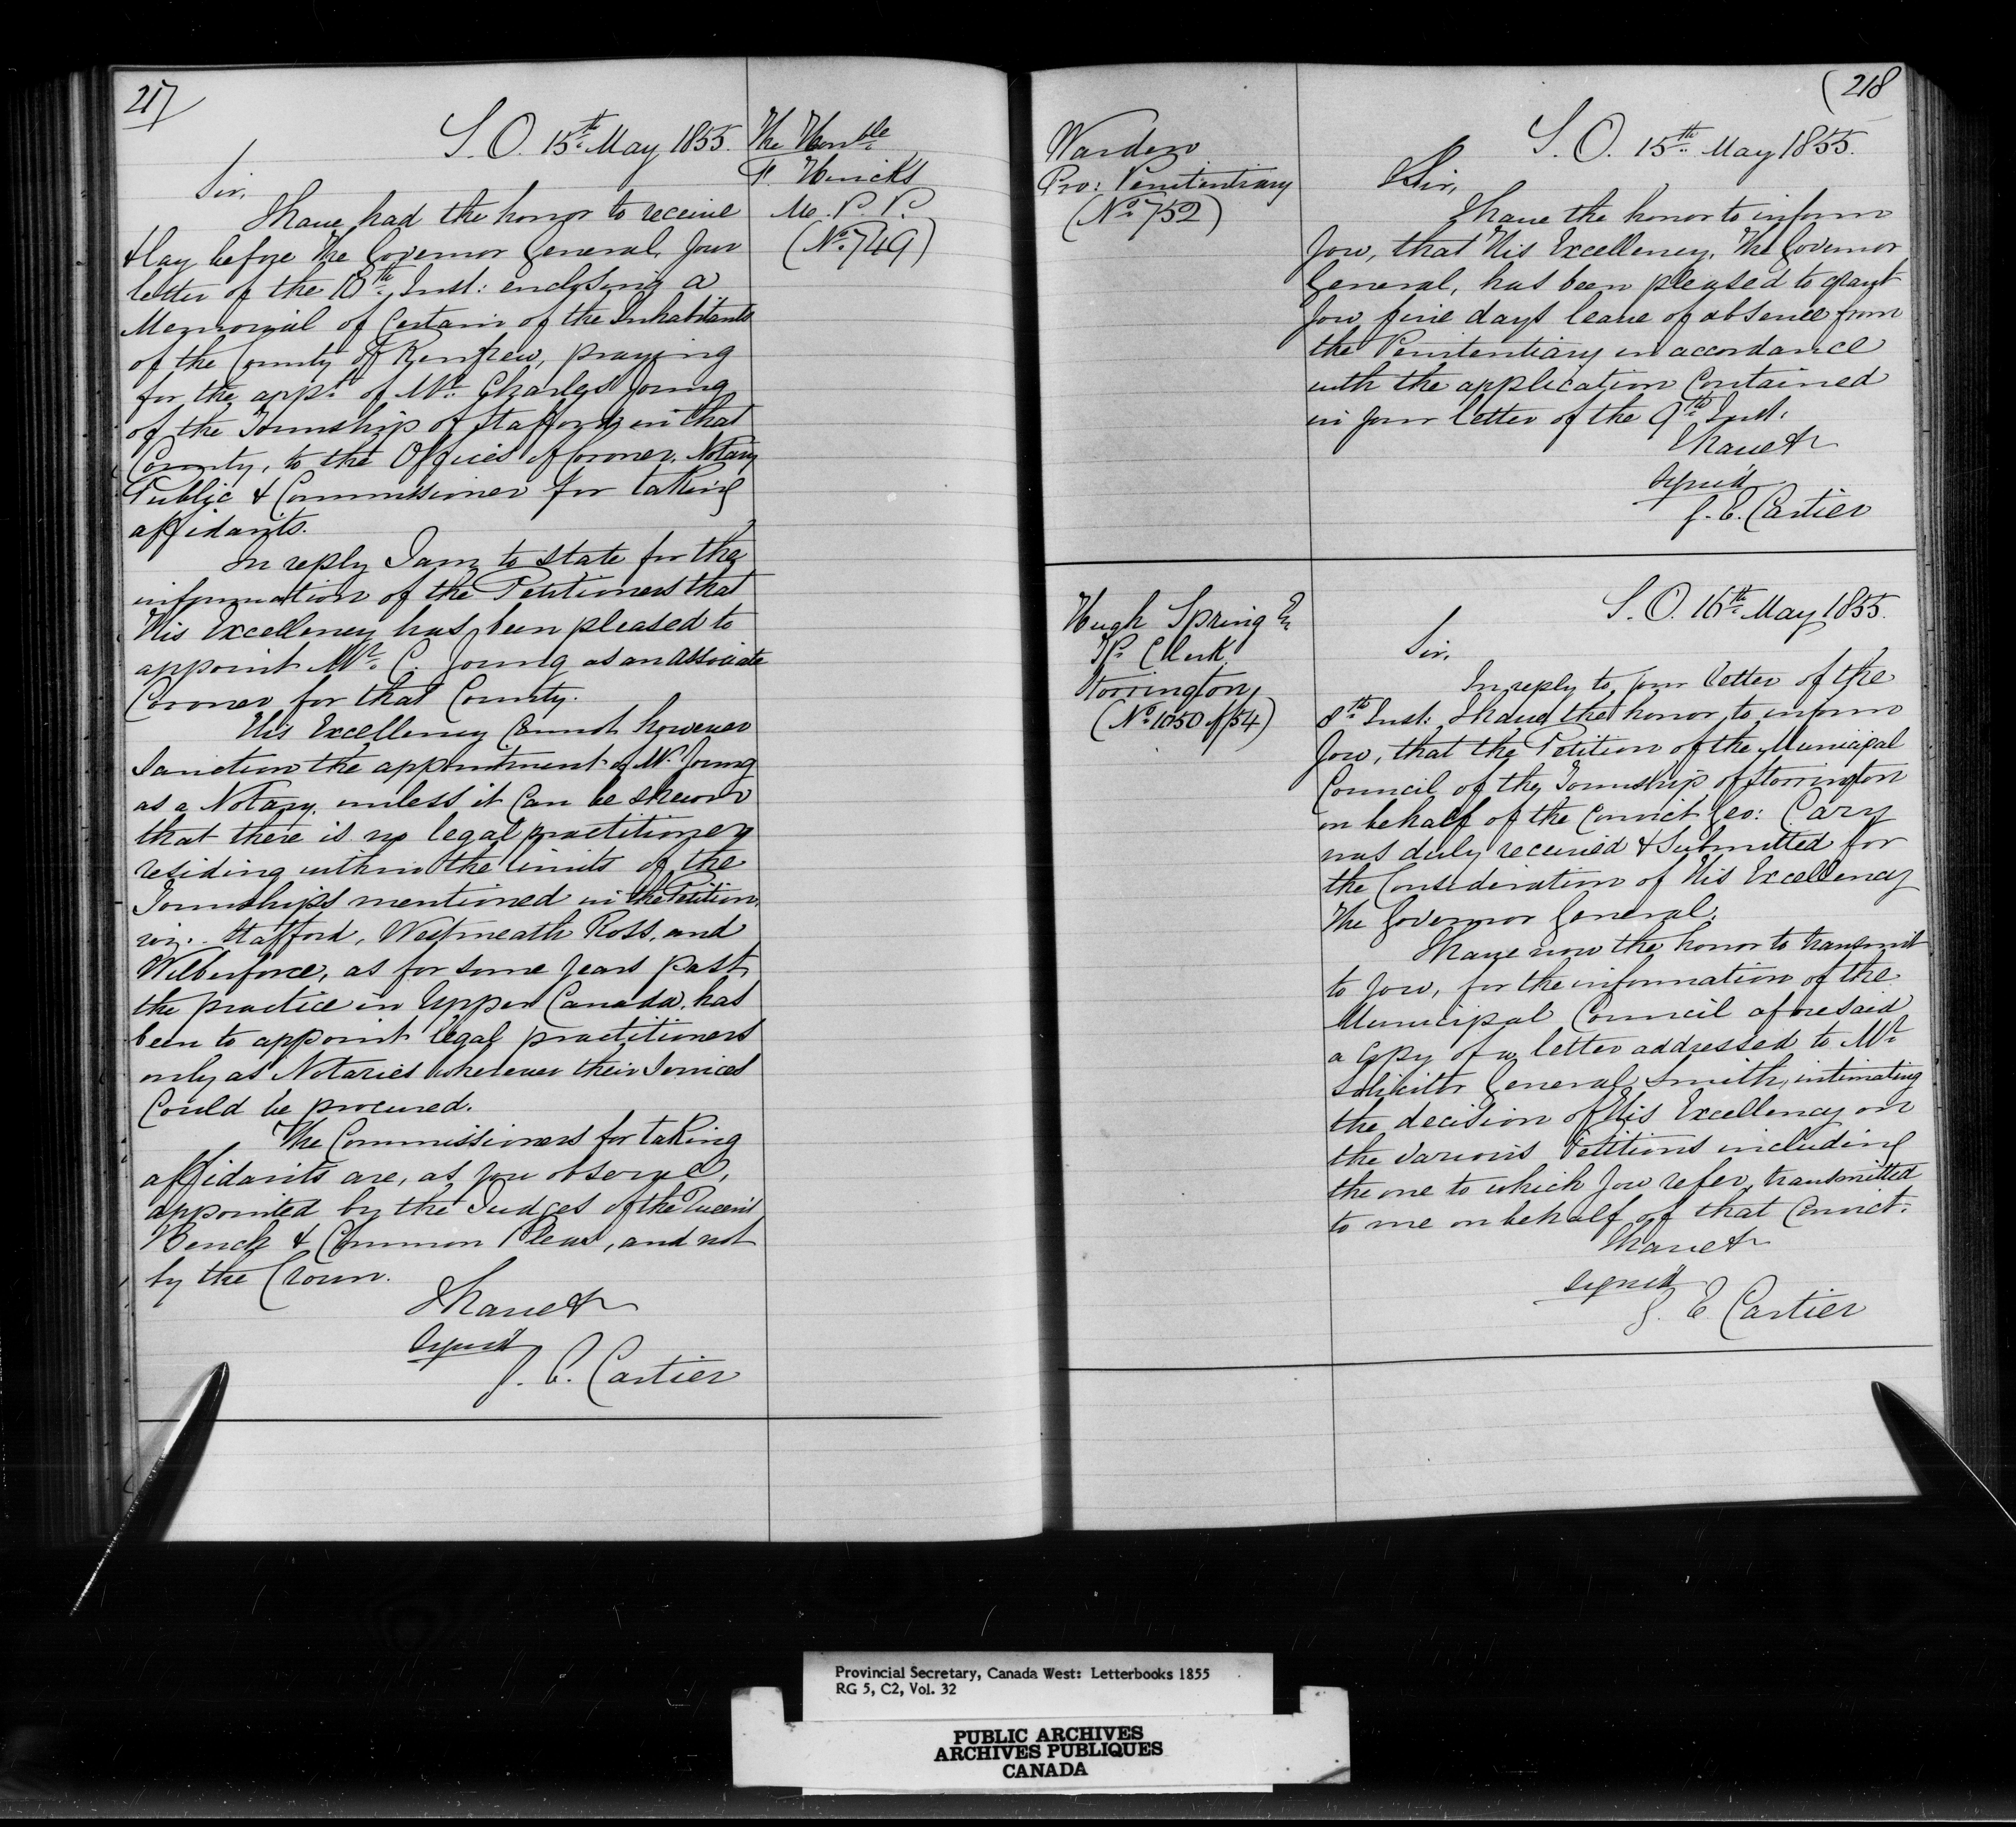 217
S.O. 15th May 1855.
The Honble
F. Hincks
M. P. P.
(No. 749)
Sir,
I have had the honor to receive
& lay before The Governor General, your
letter of the 10th Inst: enclosing a
Memorial of Certain of the Inhabitants
of the County of Renfrew, praying
for the appt. of Mr. Charles Young
of the Township of Stafford in that
County, to the Offices of Coroner, Notary
Public & Commissioner for taking
affidavits.
In reply I am to state for the
information of the Petitioners that
His Excellency has been pleased to
appoint Mr. C. Young as an associate
Coroner for that County.
His Excellency Cannot however
Sanction the appointment of Mr. Young
as a Notary, unless it Can be shewn
that there is no legal practitioner
residing within the limits of the
Townships mentioned in the Petition,
viz.. Stafford, Westmeath Ross, and
Wilberforce, as for some years past
the practice in Upper Canada, has
been to appoint legal practitioners
only as Notaries wherever their Services
Could be procured.
The Commissioners for taking
affidavits are, as you observe,
appointed by the Judges of the Queen's
Bench & Common Pleas, and not
by the Crown.
I have &
signed
G. E. Cartier
(218
Warden
Pro: Penitentiary
(No. 752)
S.O. 15th May 1855.
Sir,
I have the honor to inform
you, that His Excellency, The Governor
General, has been pleased to grant
you five days leave of absence from
the Penitentiary in accordance
with the application Contained
in your letter of the 9th Inst.
I have &
signed
G. E. Cartier
Hugh Spring E
Tp. Clerk
Storrington,
(No. 1050 of 54)
S.O. 16th May 1855.
Sir,
In reply to your letter of the
8th Inst: I have the honor to inform
you, that the Petition of the Municipal
Council of the Township of Storrington
on behalf of the Convict Geo: Cary
was duly received & Submitted for
the Consideration of His Excellency
The Governor General.
I have now the honor to transmit
to you, for the information of the
Municipal Council aforesaid
a Copy of a letter addressed to Mr.
Solicitor General Smith, intimating
the decision of His Excellency on
the various Petitions including
the one to which you refer, transmitted
to me on behalf of that Convict.
I have &
signed
G. E Cartier
Provincial Secretary, Canada West: Letterbooks 1855
RG 5, C2, Vol. 32
PUBLIC ARCHIVES
ARCHIVES PUBLIQUES
CANADA